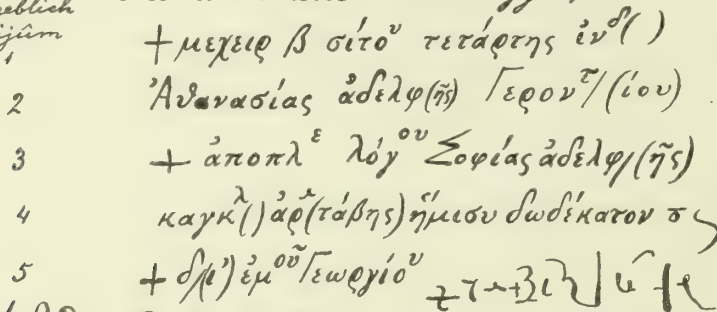 eblich
ijûm
1 + μεχειρ β σίτο^υ τετάρτης ἰν^δ( )
2 Ἀθανασίας ἀδελφ(ῆς) Γερον^τ/(ίου)
3 + ἀποπλ^ε λόγ^ου Σοφίας ἀδελφ/(ῆς)
4 καγκ^λ() ἀρ(τάβης) ἥμισυ δωδέκατον
5 + δ/(ι') ἐμ^οῦ Γεωργίο^υ